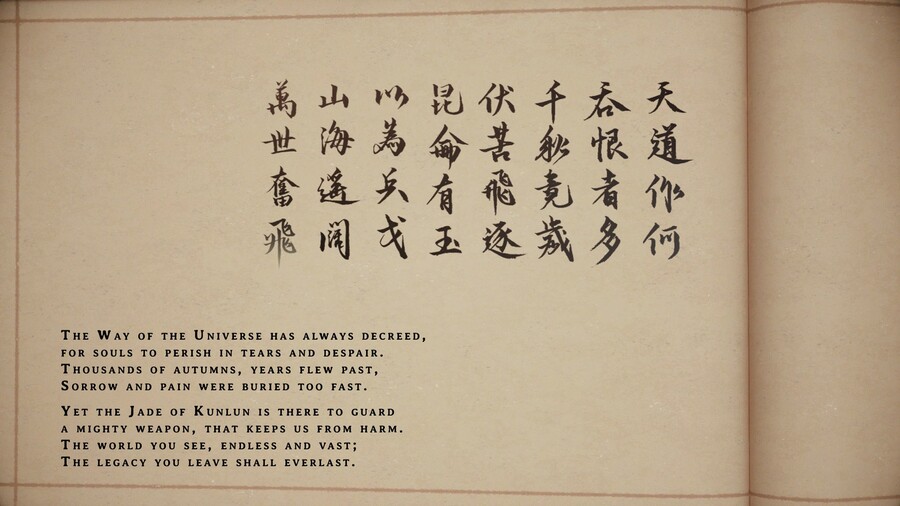 天道作何
吞恨者多
千秋竟歲
伏苦飛逐
昆侖有玉
以為兵戈
山海遙闊
萬世奮飛
The Way of the Universe has always decreed,
for souls to perish in tears and despair.
Thousands of autumns, years flew past,
Sorrow and pain were buried too fast.
Yet the Jade of Kunlun is there to guard
a mighty weapon, that keeps us from harm.
The world you see, endless and vast;
The legacy you leave shall everlast.